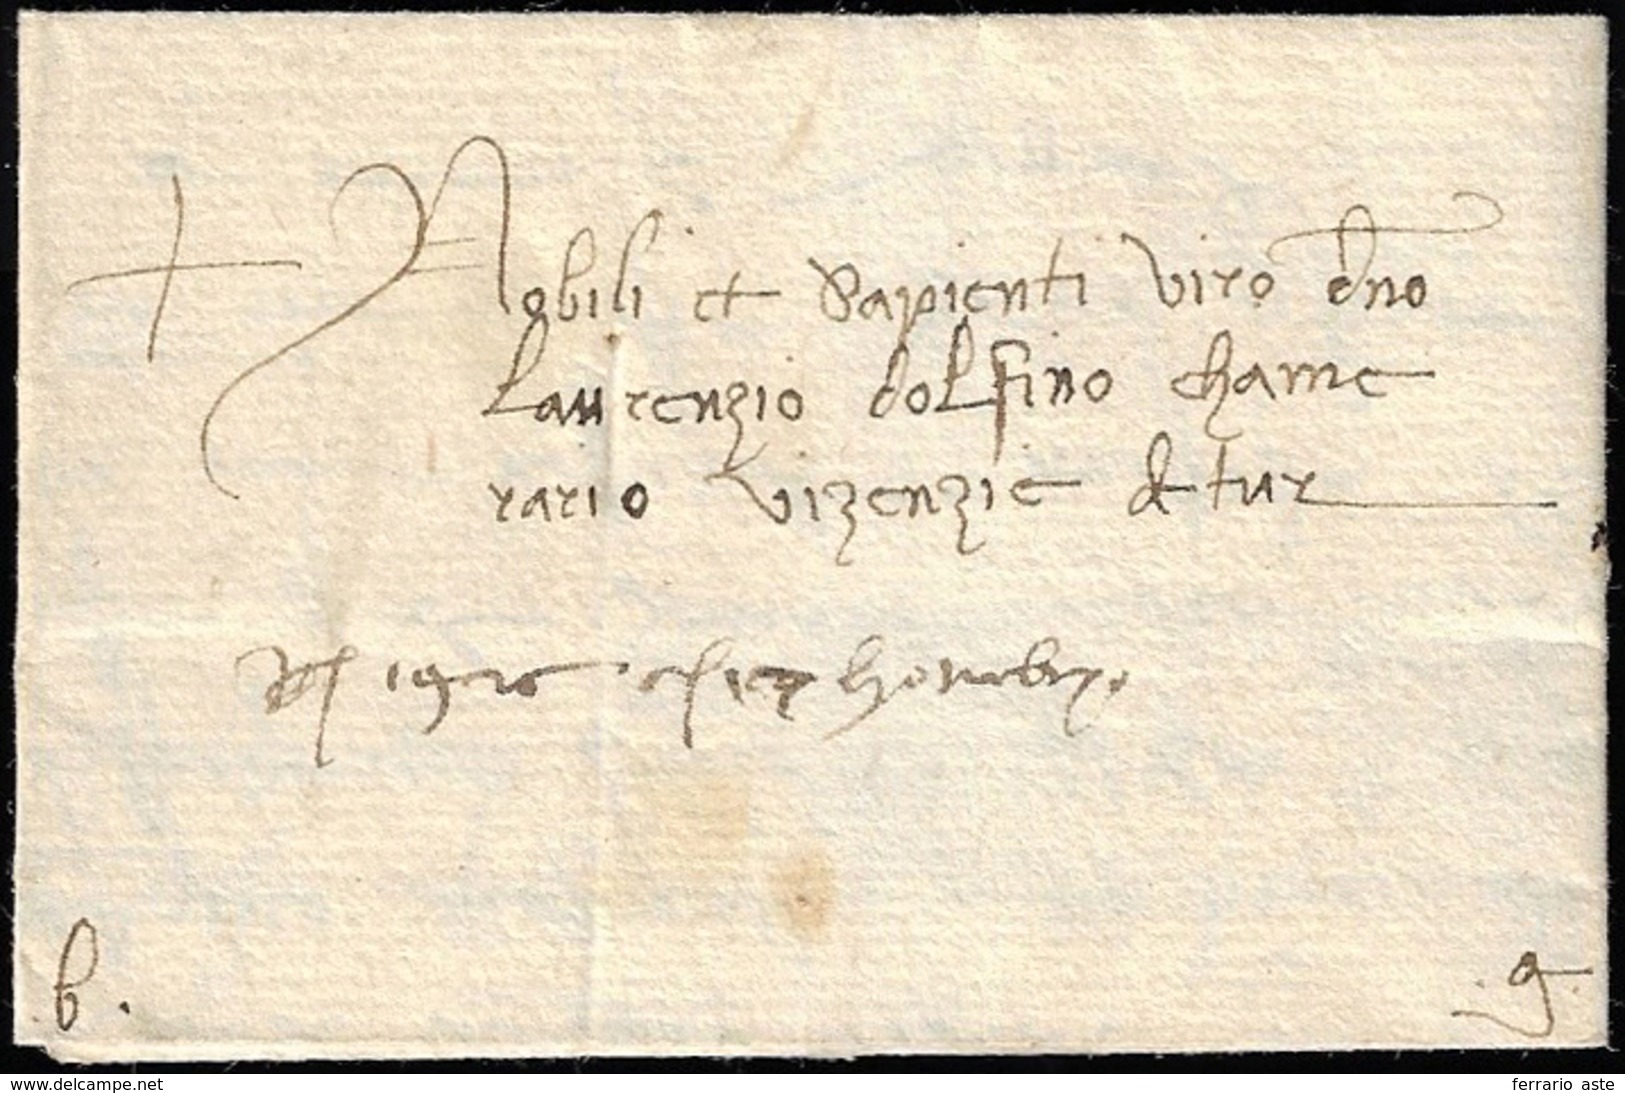 + Nobili et Sapienti viro dno
Laurenzio dolfino chame
rario vizenzie &tur
b.
.g.
www.delcampe.net
ferrario aste